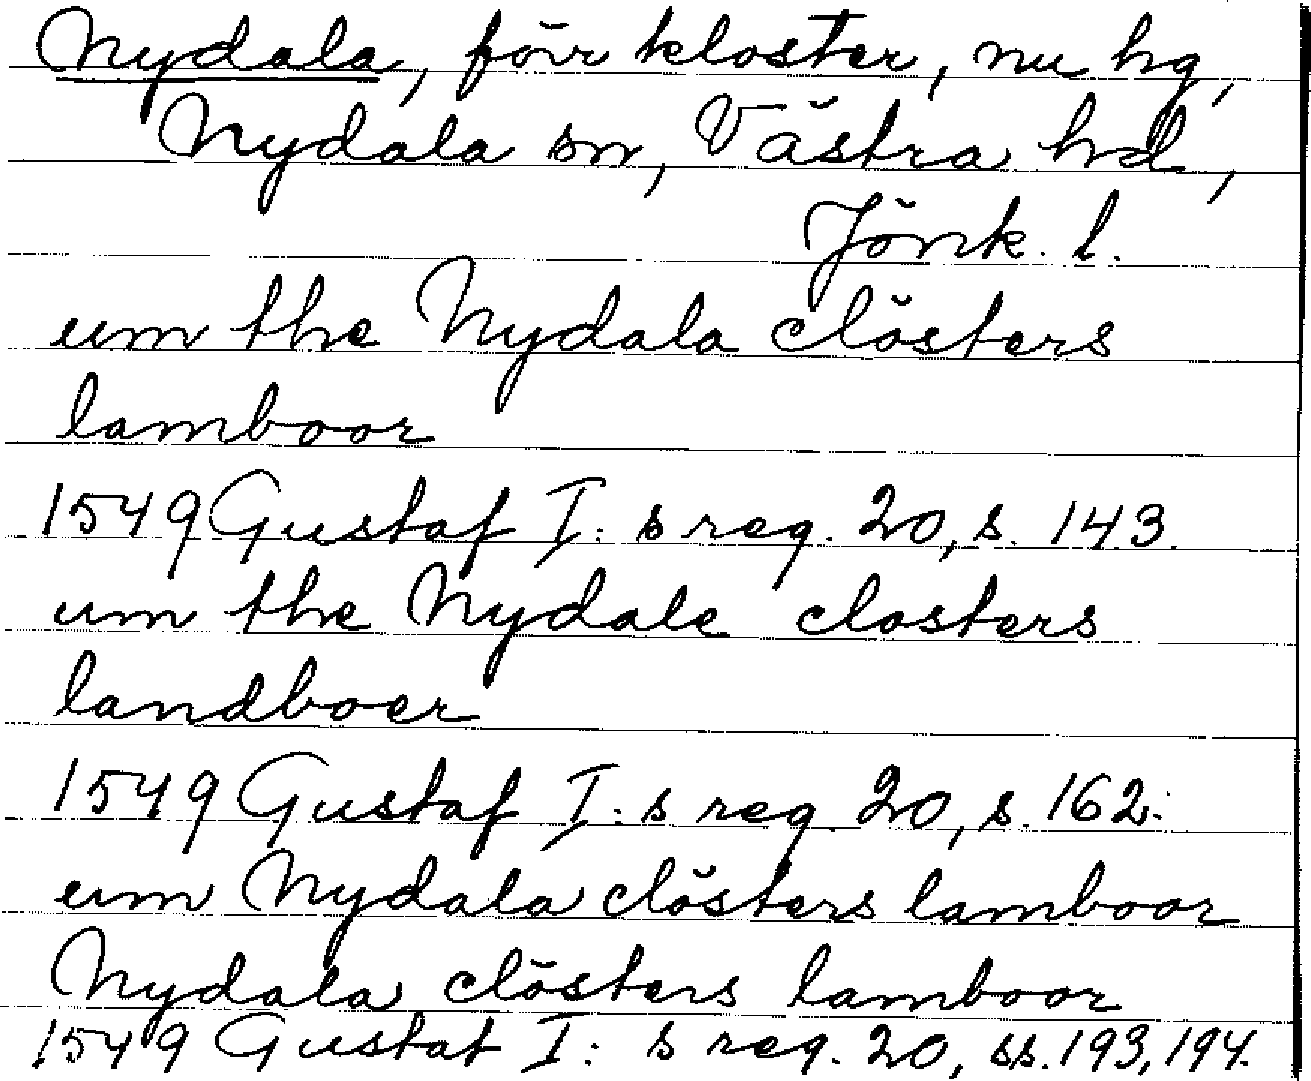 Nydala, förr kloster, nu hg,
Nydala sn, Västra hd,
Jönk. l.
um the Nydala clösters
lamboor
1549 Gustaf I:s reg. 20, s. 143.
um the Nydale closters
landboer
1549 Gustaf I:s reg. 20, s. 162.
um Nydala clösters lamboor
Nydala clösters lamboor
1549 Gustaf I:s reg. 20, ss. 193, 194.